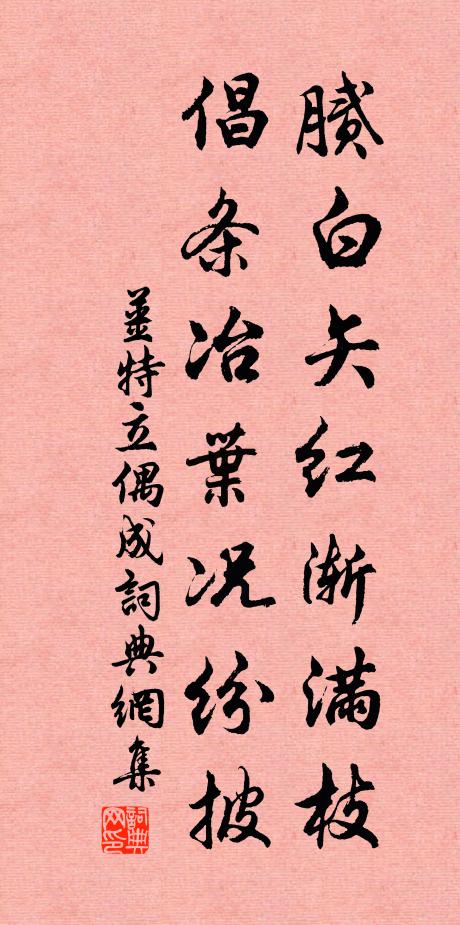 膩白夭红渐滿枝
倡条冶葉况纷披
薑特立偶成詞典網集
詞典网印